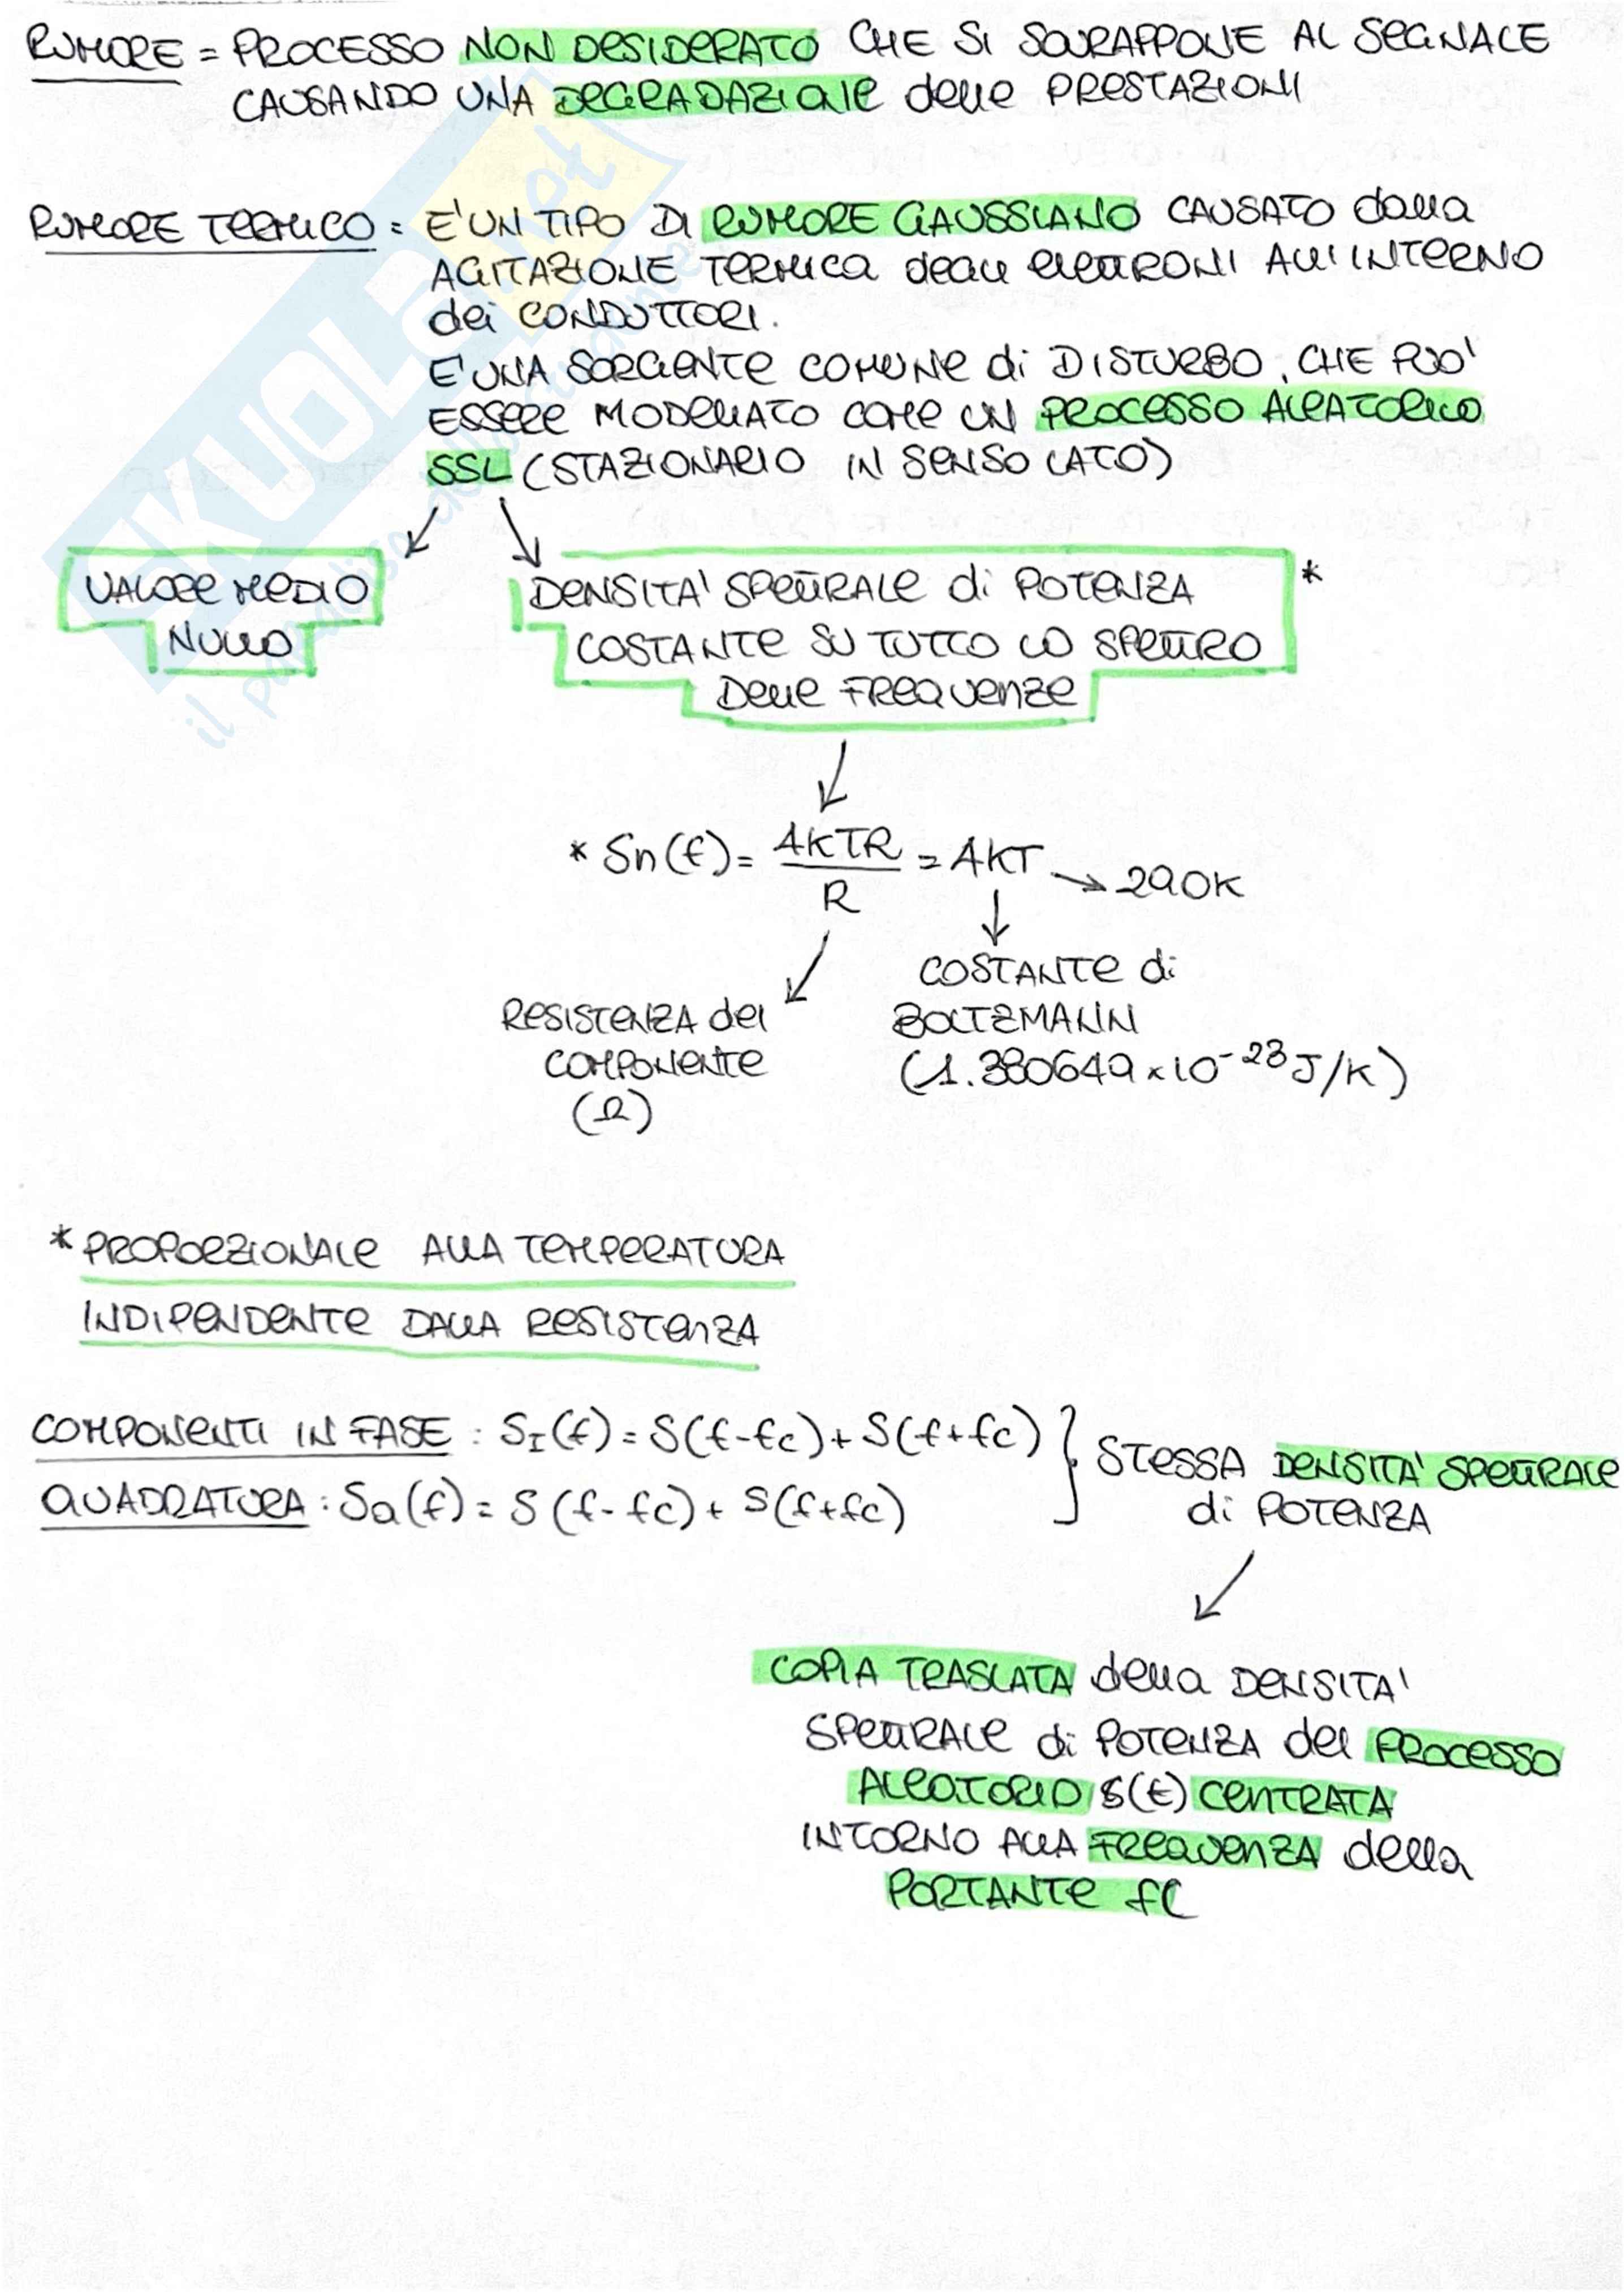 RUMORE = PROCESSO NON DESIDERATO CHE SI SOVRAPPONE AL SEGNALE
CAUSANDO UNA DEGRADAZIONE delle PRESTAZIONI
RUMORE TERMICO = E' UN TIPO DI RUMORE GAUSSIANO CAUSATO dalla
AGITAZIONE TERMICA degli elettroni ALL'INTERNO
dei CONDUTTORI.
E' UNA SORGENTE COMUNE di DISTURBO, CHE PUO'
ESSERE MODELLATO COME UN PROCESSO ALEATORICO
SSL (STAZIONARIO IN SENSO LATO)
VALORE MEDIO
NULLO
DENSITA' SPETTRALE di POTENZA *
COSTANTE SU TUTTO LO SPETTRO
DELLE FREQUENZE
* Sn(f) = 4KTR/R = 4KT → 290K
RESISTENZA del
COMPONENTE
(Ω)
COSTANTE di
BOLTZMANN
(1.380649 × 10⁻²³ J/K)
* PROPORZIONALE ALLA TEMPERATURA
INDIPENDENTE DALLA RESISTENZA
COMPONENTI IN FASE : S_I(f) = S(f-fc) + S(f+fc)
QUADRATURA : S_Q(f) = S(f-fc) + S(f+fc)
} STESSA DENSITA' SPETTRALE
di POTENZA
COPIA TRASLATA della DENSITA'
SPETTRALE di POTENZA del PROCESSO
ALEATORIO S(t) CENTRATA
INTORNO ALLA FREQUENZA della
PORTANTE fc
SKUOLA.net